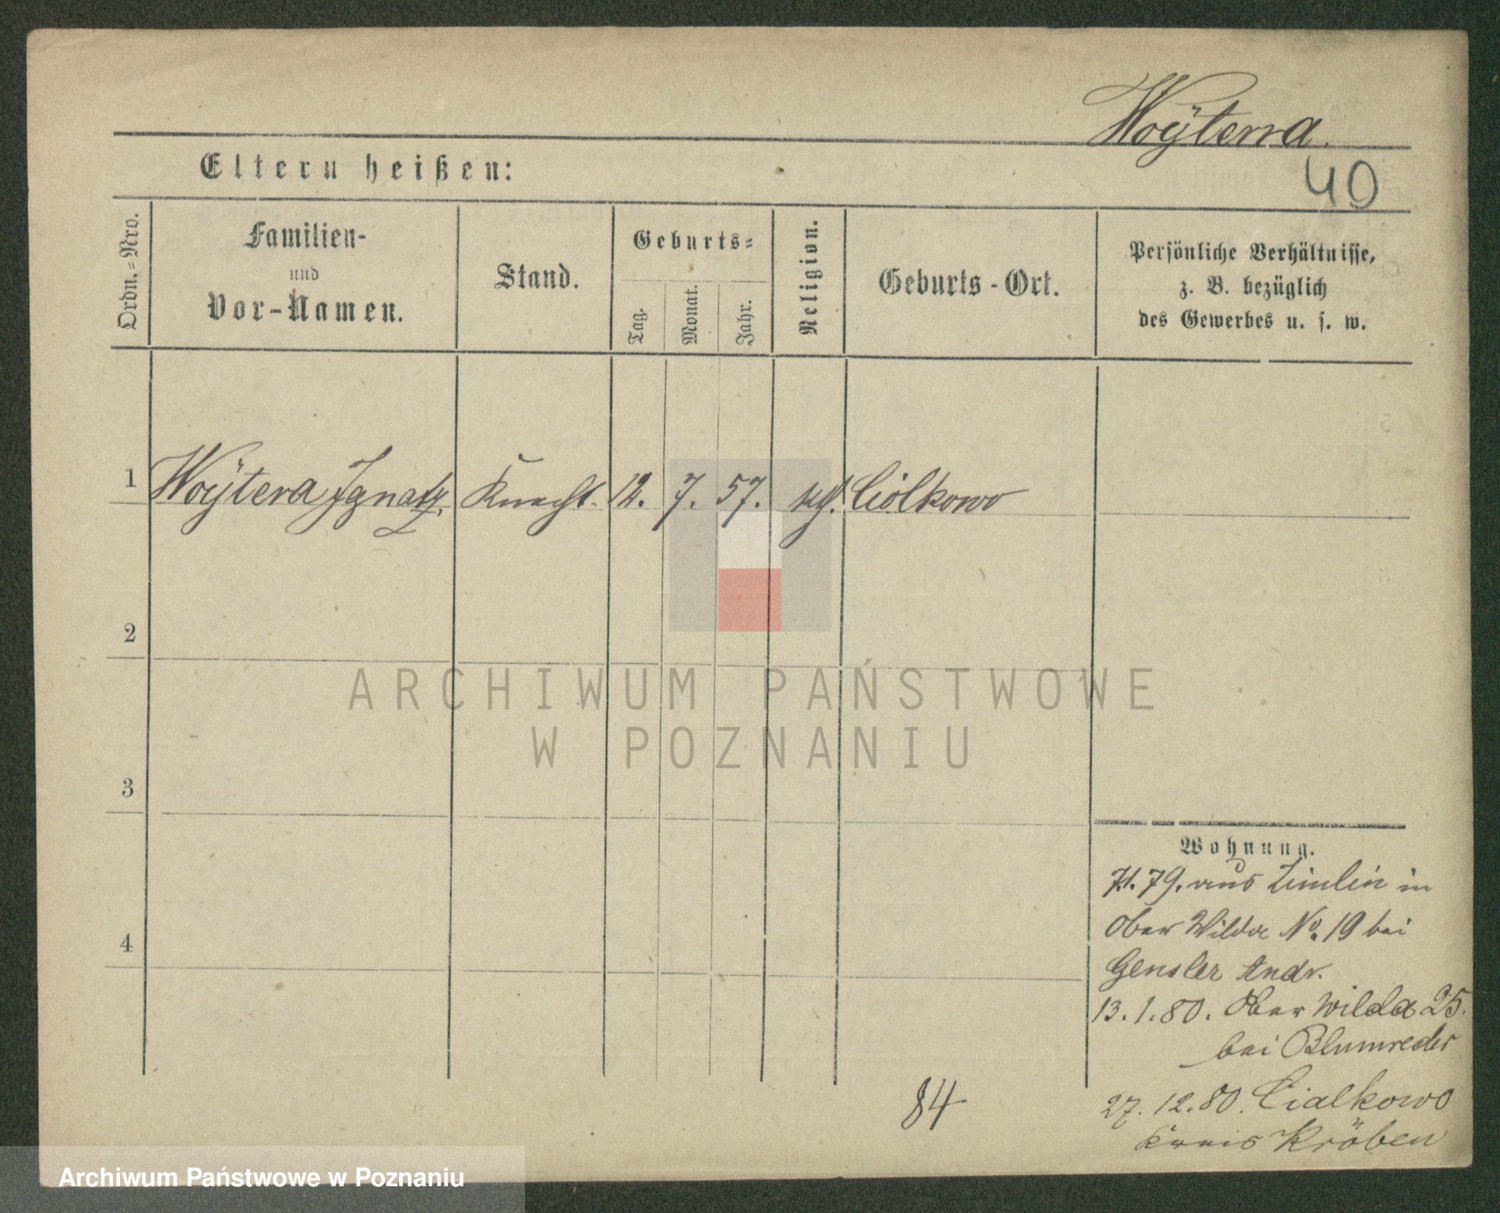 Woÿterra.
40
Eltern heißen:
Ordn.=Nro.
Familien-
und
Vor-Namen.
Stand.
Geburts=
Tag.
Monat.
Jahr.
Religion.
Geburts-Ort.
Persönliche Verhältnisse,
z. B. bezüglich
des Gewerbes u. s. w.
1 Woÿtera Ignatz. Knecht. 12. 7. 57. Ciolkowo
2
3
4
Wohnung.
7.1.79. aus Zimlin in
Ober Wilda No. 19 bei
Gensler Andr.
13.1.80. Ober Wilda 25.
bei Blumreder
27.12.80. Cialkowo
Kreis Kröben
84
ARCHIWUM PAŃSTWOWE
W POZNANIU
Archiwum Państwowe w Poznaniu